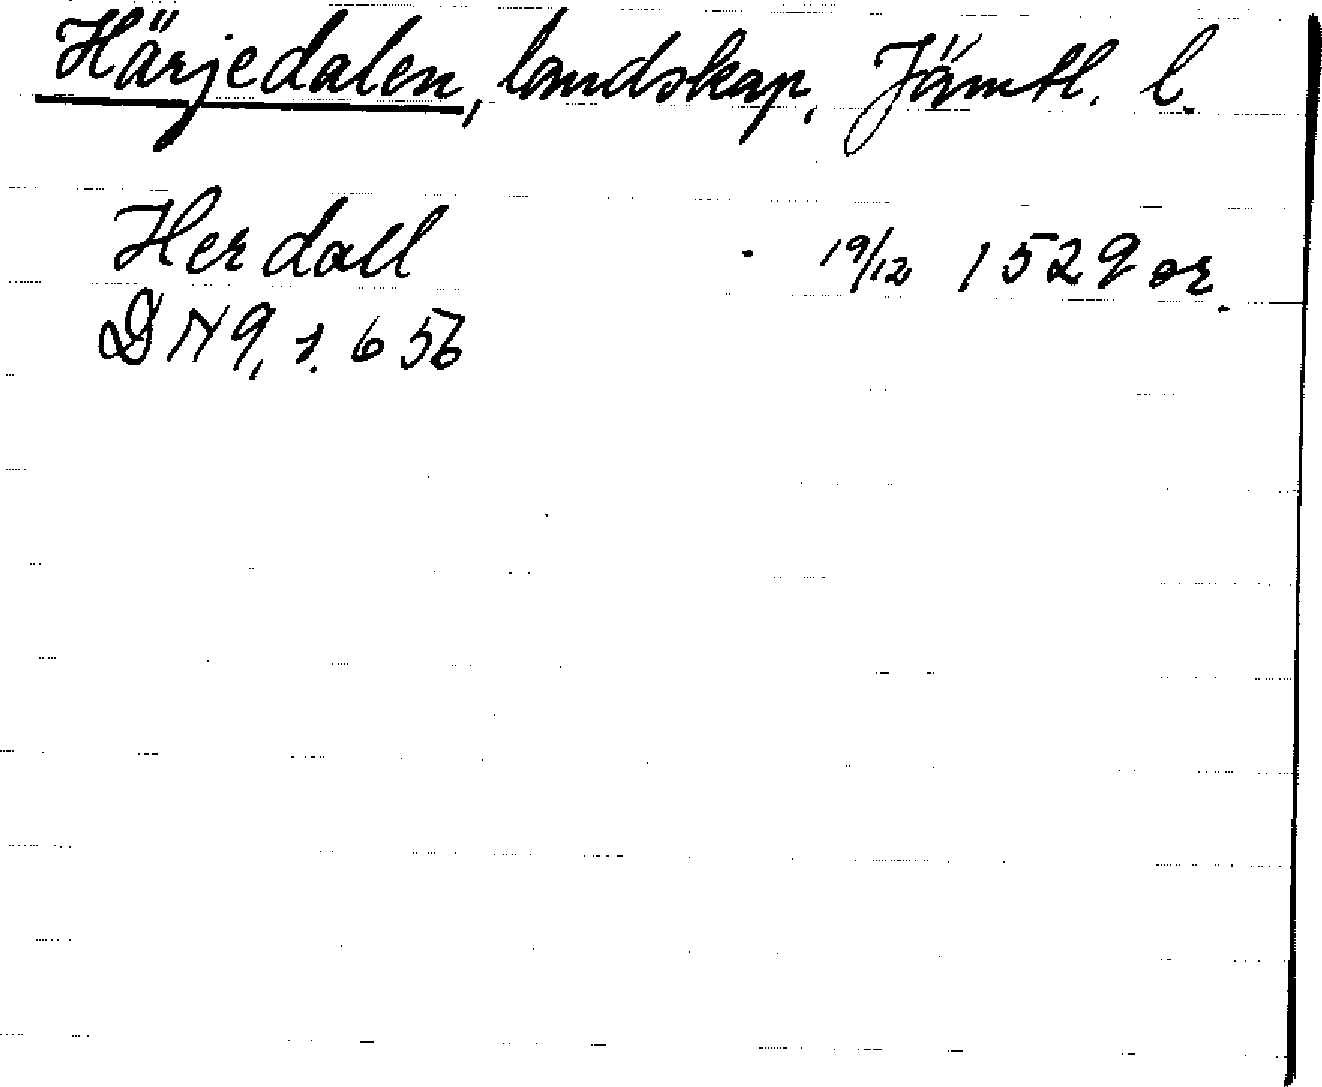 Härjedalen, landskap, Jämtl. l.
Herdall 19/12 1529 or.
DN 9, s. 656